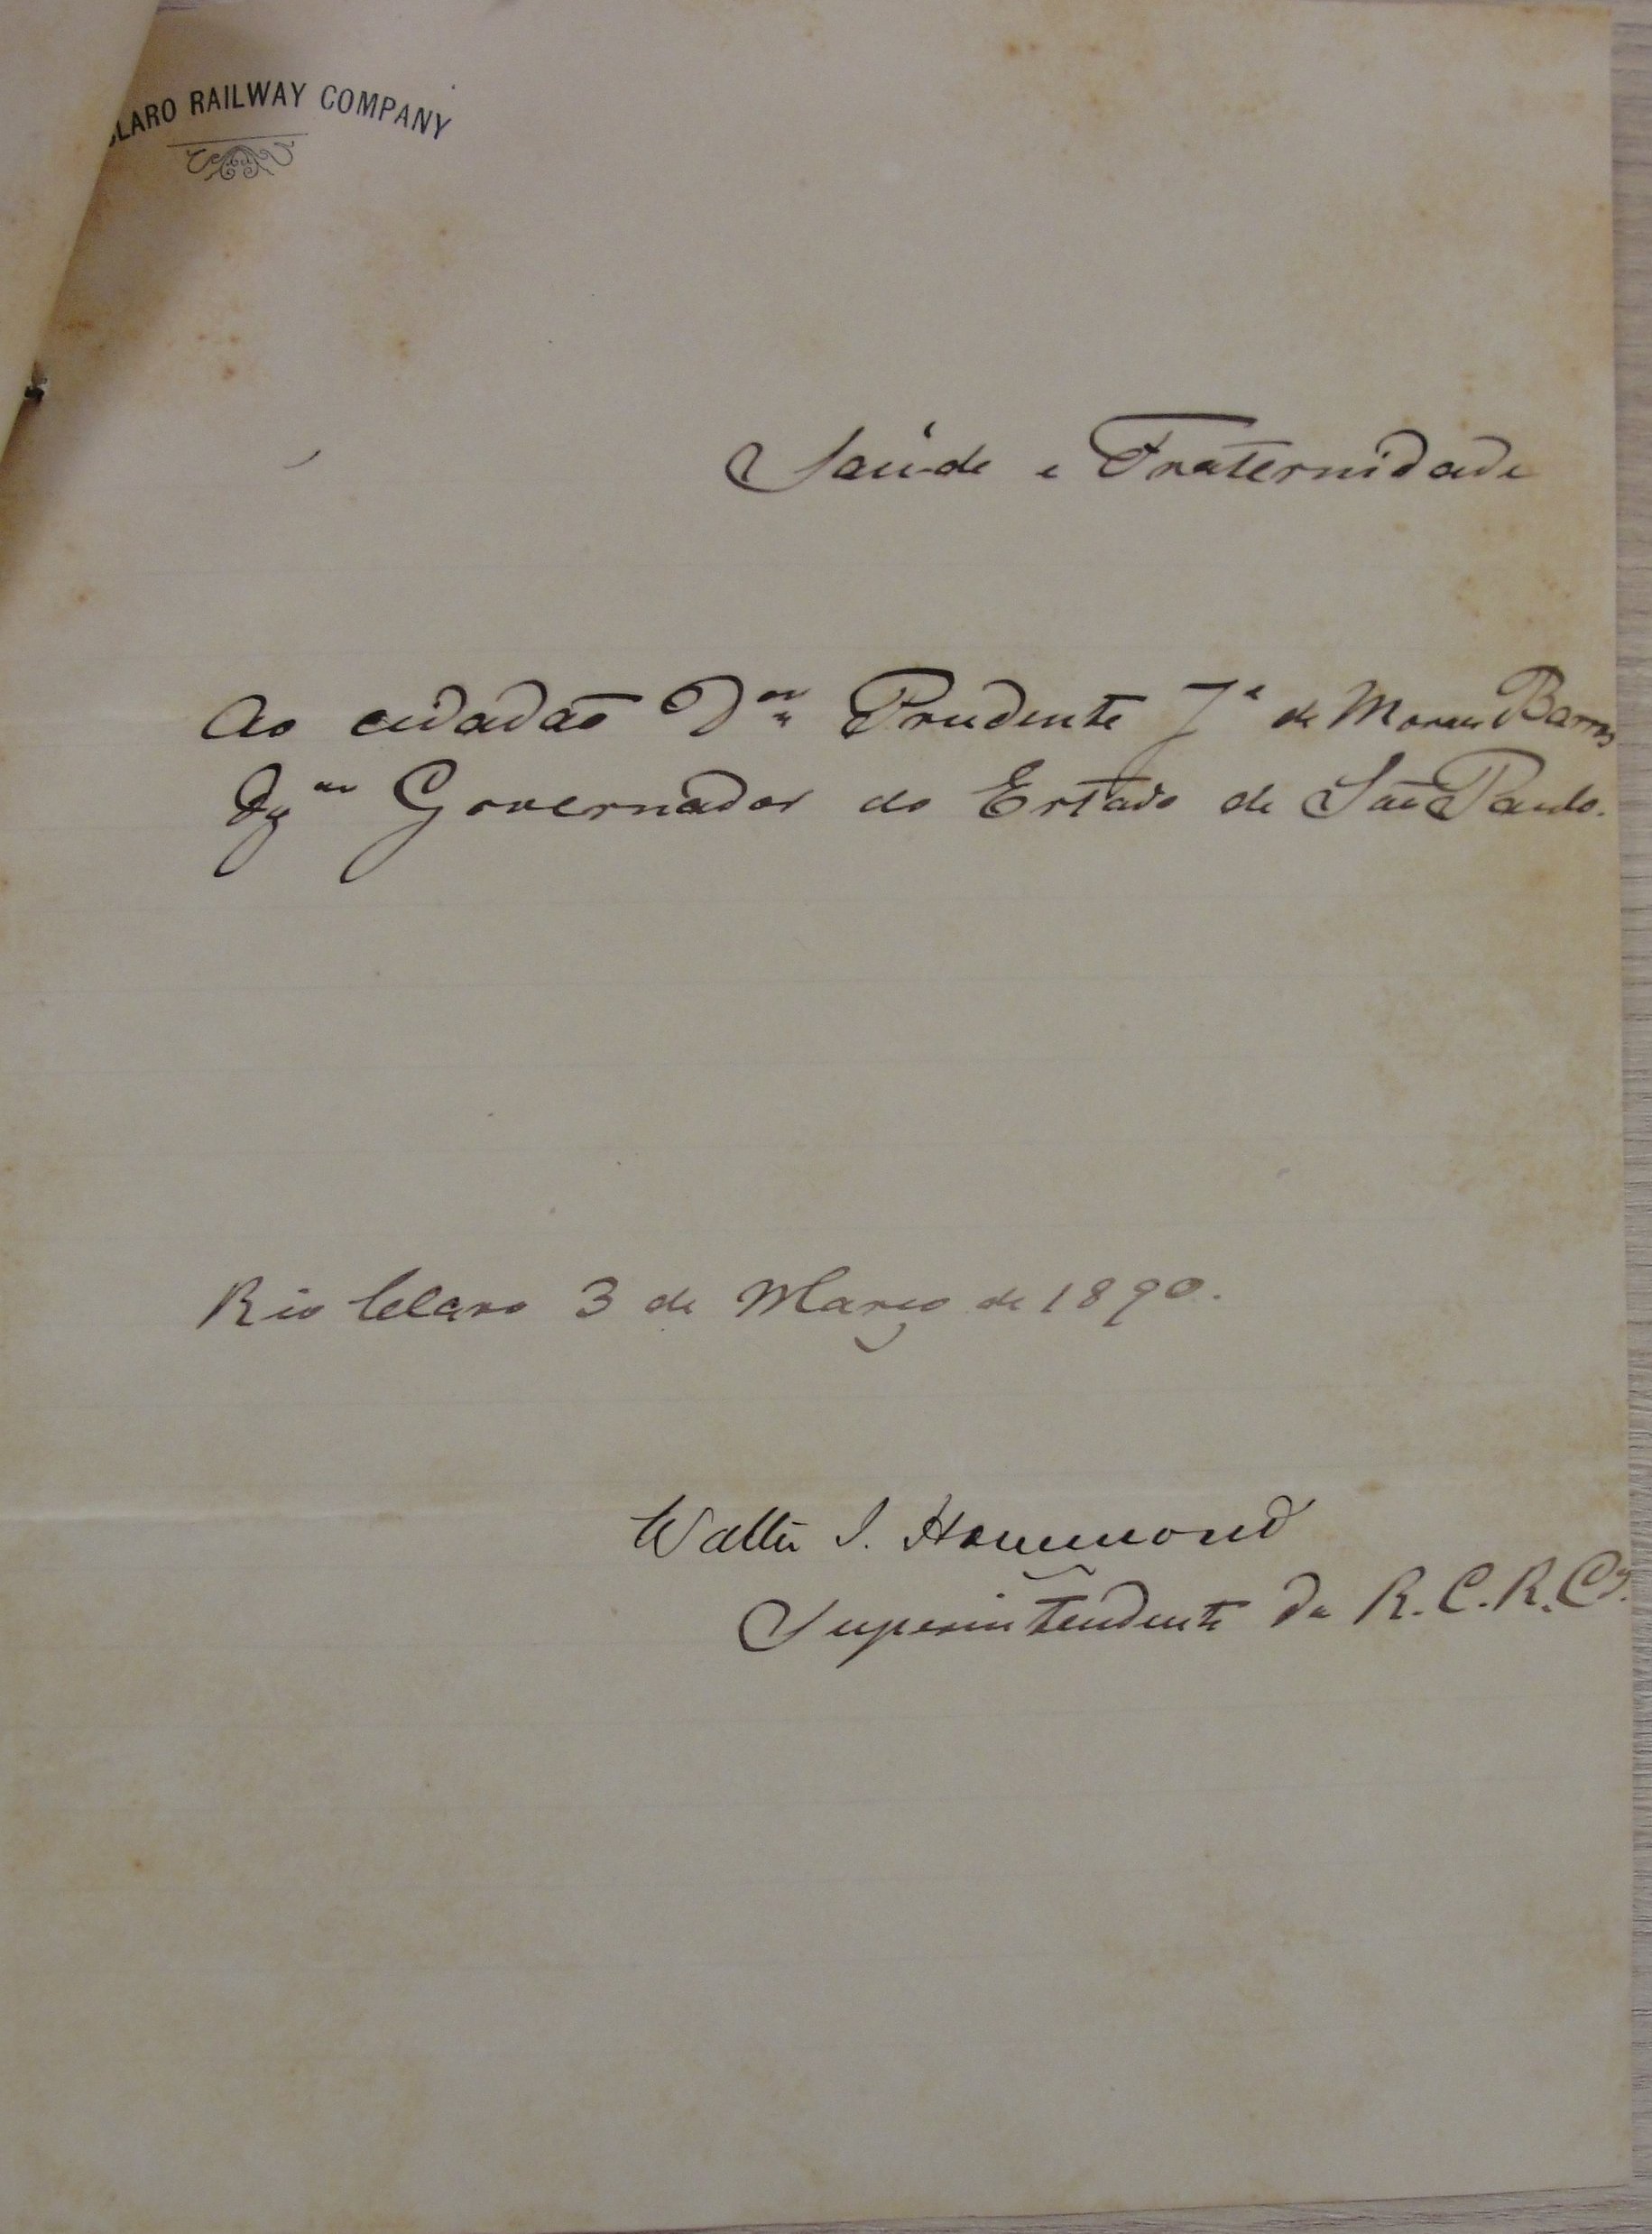 CLARO RAILWAY COMPANY
Saúde e Fraternidade
Ao cidadão Dor Prudente Je de Moraes Barros
Dgmo Governador do Estado de São Paulo.
Rio Claro 3 de Março de 1890.
Walter J. Hammond
Superintendente da R. C. R. Cy.